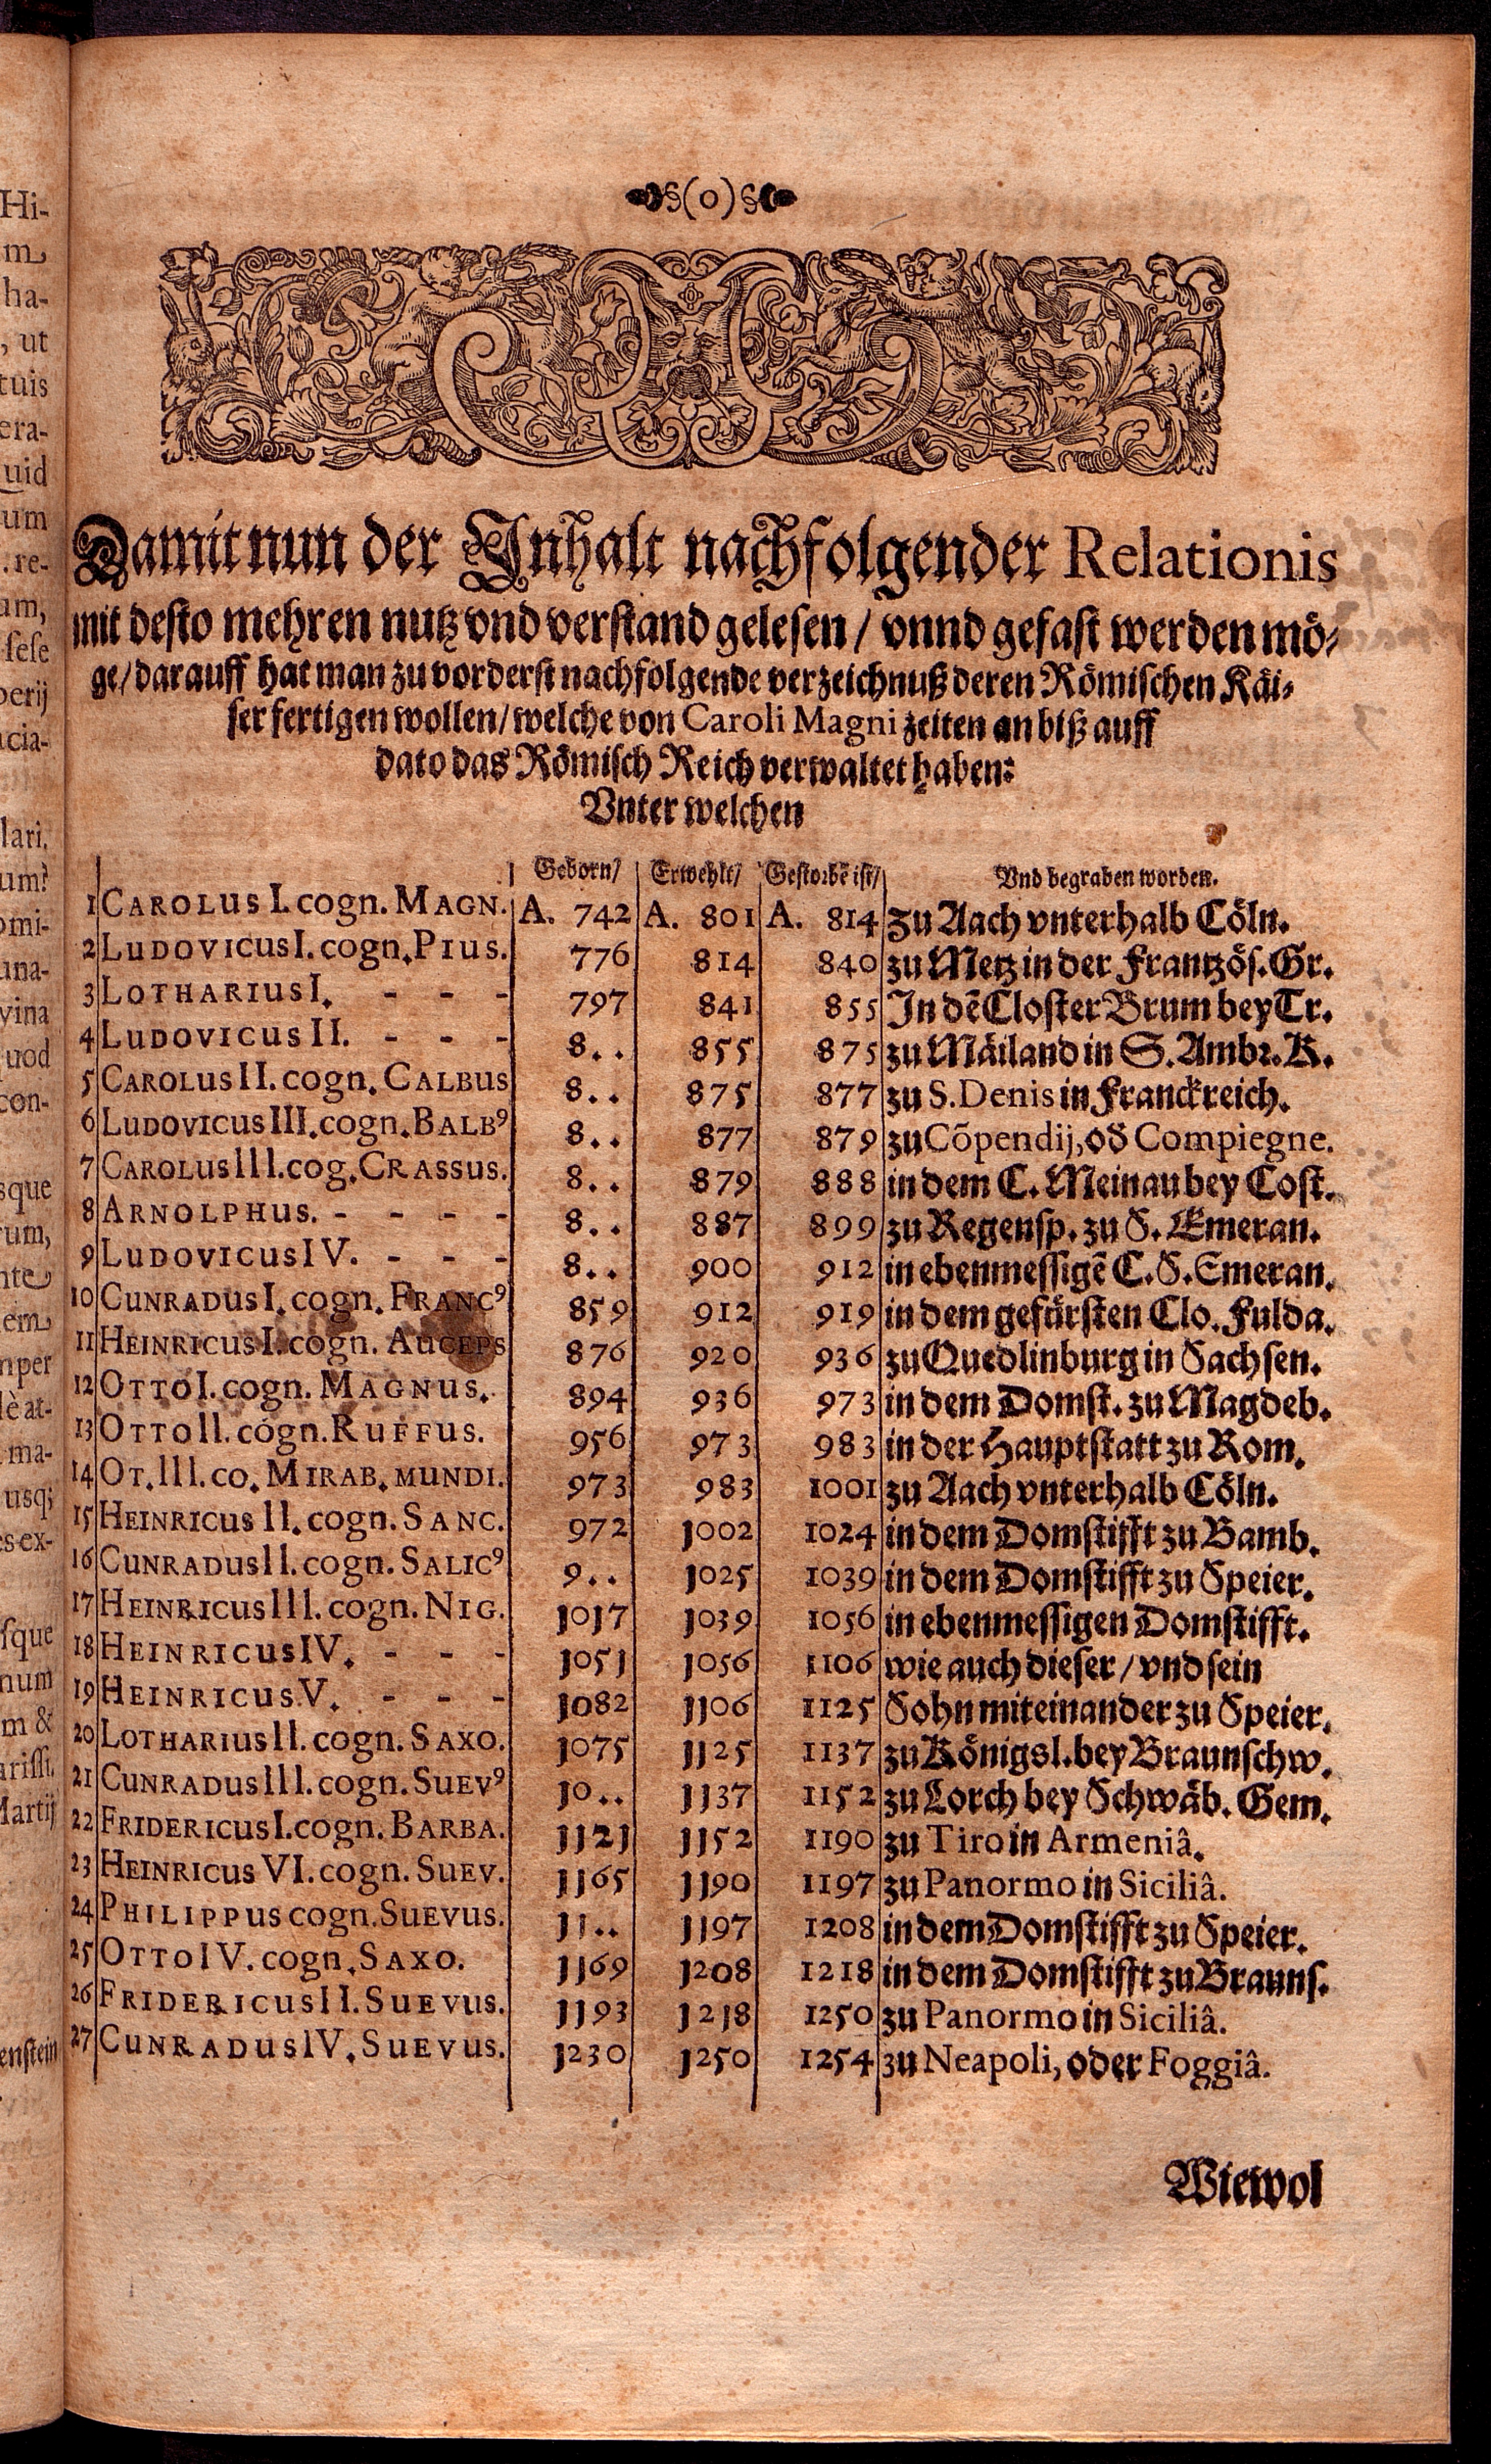 §(0)§
Damit nun der Inhalt nachfolgender Relationis
mit desto mehren nutz vnd verstand gelesen / vnnd gefast werden mö-
ge / darauff hat man zu vorderst nachfolgende verzeichnuß deren Römischen Käi-
ser fertigen wollen / welche von Caroli Magni zeiten an biß auff
dato das Römisch Reich verwaltet haben:
Vnter welchen
Geborn / Erwehlt / Gestorbẽ ist / Vnd begraben worden.
1 CAROLUS I. cogn. MAGN. A. 742 A. 801 A. 814 zu Aach vnterhalb Cöln.
2 LUDOVICUS I. cogn. PIUS. 776 814 840 zu Metz in der Frantzös. Gr.
3 LOTHARIUS I. - - - 797 841 855 In dẽ Closter Brum bey Tr.
4 LUDOVICUS II. - - - 8.. 855 875 zu Mäiland in S. Ambr. K.
5 CAROLUS II. cogn. CALBUS 8.. 875 877 zu S. Denis in Franckreich.
6 LUDOVICUS III. cogn. BALBꝰ 8.. 877 879 zu Cõpendij, od Compiegne.
7 CAROLUS III. cog. CRASSUS. 8.. 879 888 in dem C. Meinau bey Cost.
8 ARNOLPHUS. - - - - 8.. 887 899 zu Regensp. zu S. Emeran.
9 LUDOVICUS IV. - - - 8.. 900 912 in ebenmessigẽ C. S. Emeran.
10 CUNRADUS I. cogn. FRANCꝰ 859 912 919 in dem gefürsten Clo. Fulda.
11 HEINRICUS I. cogn. AUCEPS 876 920 936 zu Quedlinburg in Sachsen.
12 OTTO I. cogn. MAGNUS. 894 936 973 in dem Domst. zu Magdeb.
13 OTTO II. cogn. RUFFUS. 956 973 983 in der Hauptstatt zu Rom.
14 OT. III. co. MIRAB. MUNDI. 973 983 1001 zu Aach vnterhalb Cöln.
15 HEINRICUS II. cogn. SANC. 972 1002 1024 in dem Domstifft zu Bamb.
16 CUNRADUS II. cogn. SALICꝰ 9.. 1025 1039 in dem Domstifft zu Speier.
17 HEINRICUS III. cogn. NIG. 1017 1039 1056 in ebenmessigen Domstifft.
18 HEINRICUS IV. - - - 1051 1056 1106 wie auch dieser / vnd sein
19 HEINRICUS V. - - - 1082 1106 1125 Sohn miteinander zu Speier.
20 LOTHARIUS II. cogn. SAXO. 1075 1125 1137 zu Königsl. bey Braunschw.
21 CUNRADUS III. cogn. SUEVꝰ 10.. 1137 1152 zu Lorch bey Schwäb. Gem.
22 FRIDERICUS I. cogn. BARBA. 1121 1152 1190 zu Tiro in Armeniâ.
23 HEINRICUS VI. cogn. SUEV. 1165 1190 1197 zu Panormo in Siciliâ.
24 PHILIPPUS cogn. SUEVUS. 11.. 1197 1208 in dem Domstifft zu Speier.
25 OTTO IV. cogn. SAXO. 1169 1208 1218 in dem Domstifft zu Brauns.
26 FRIDERICUS II. SUEVUS. 1193 1218 1250 zu Panormo in Siciliâ.
27 CUNRADUS IV. SUEVUS. 1230 1250 1254 zu Neapoli, oder Foggiâ.
Wiewol